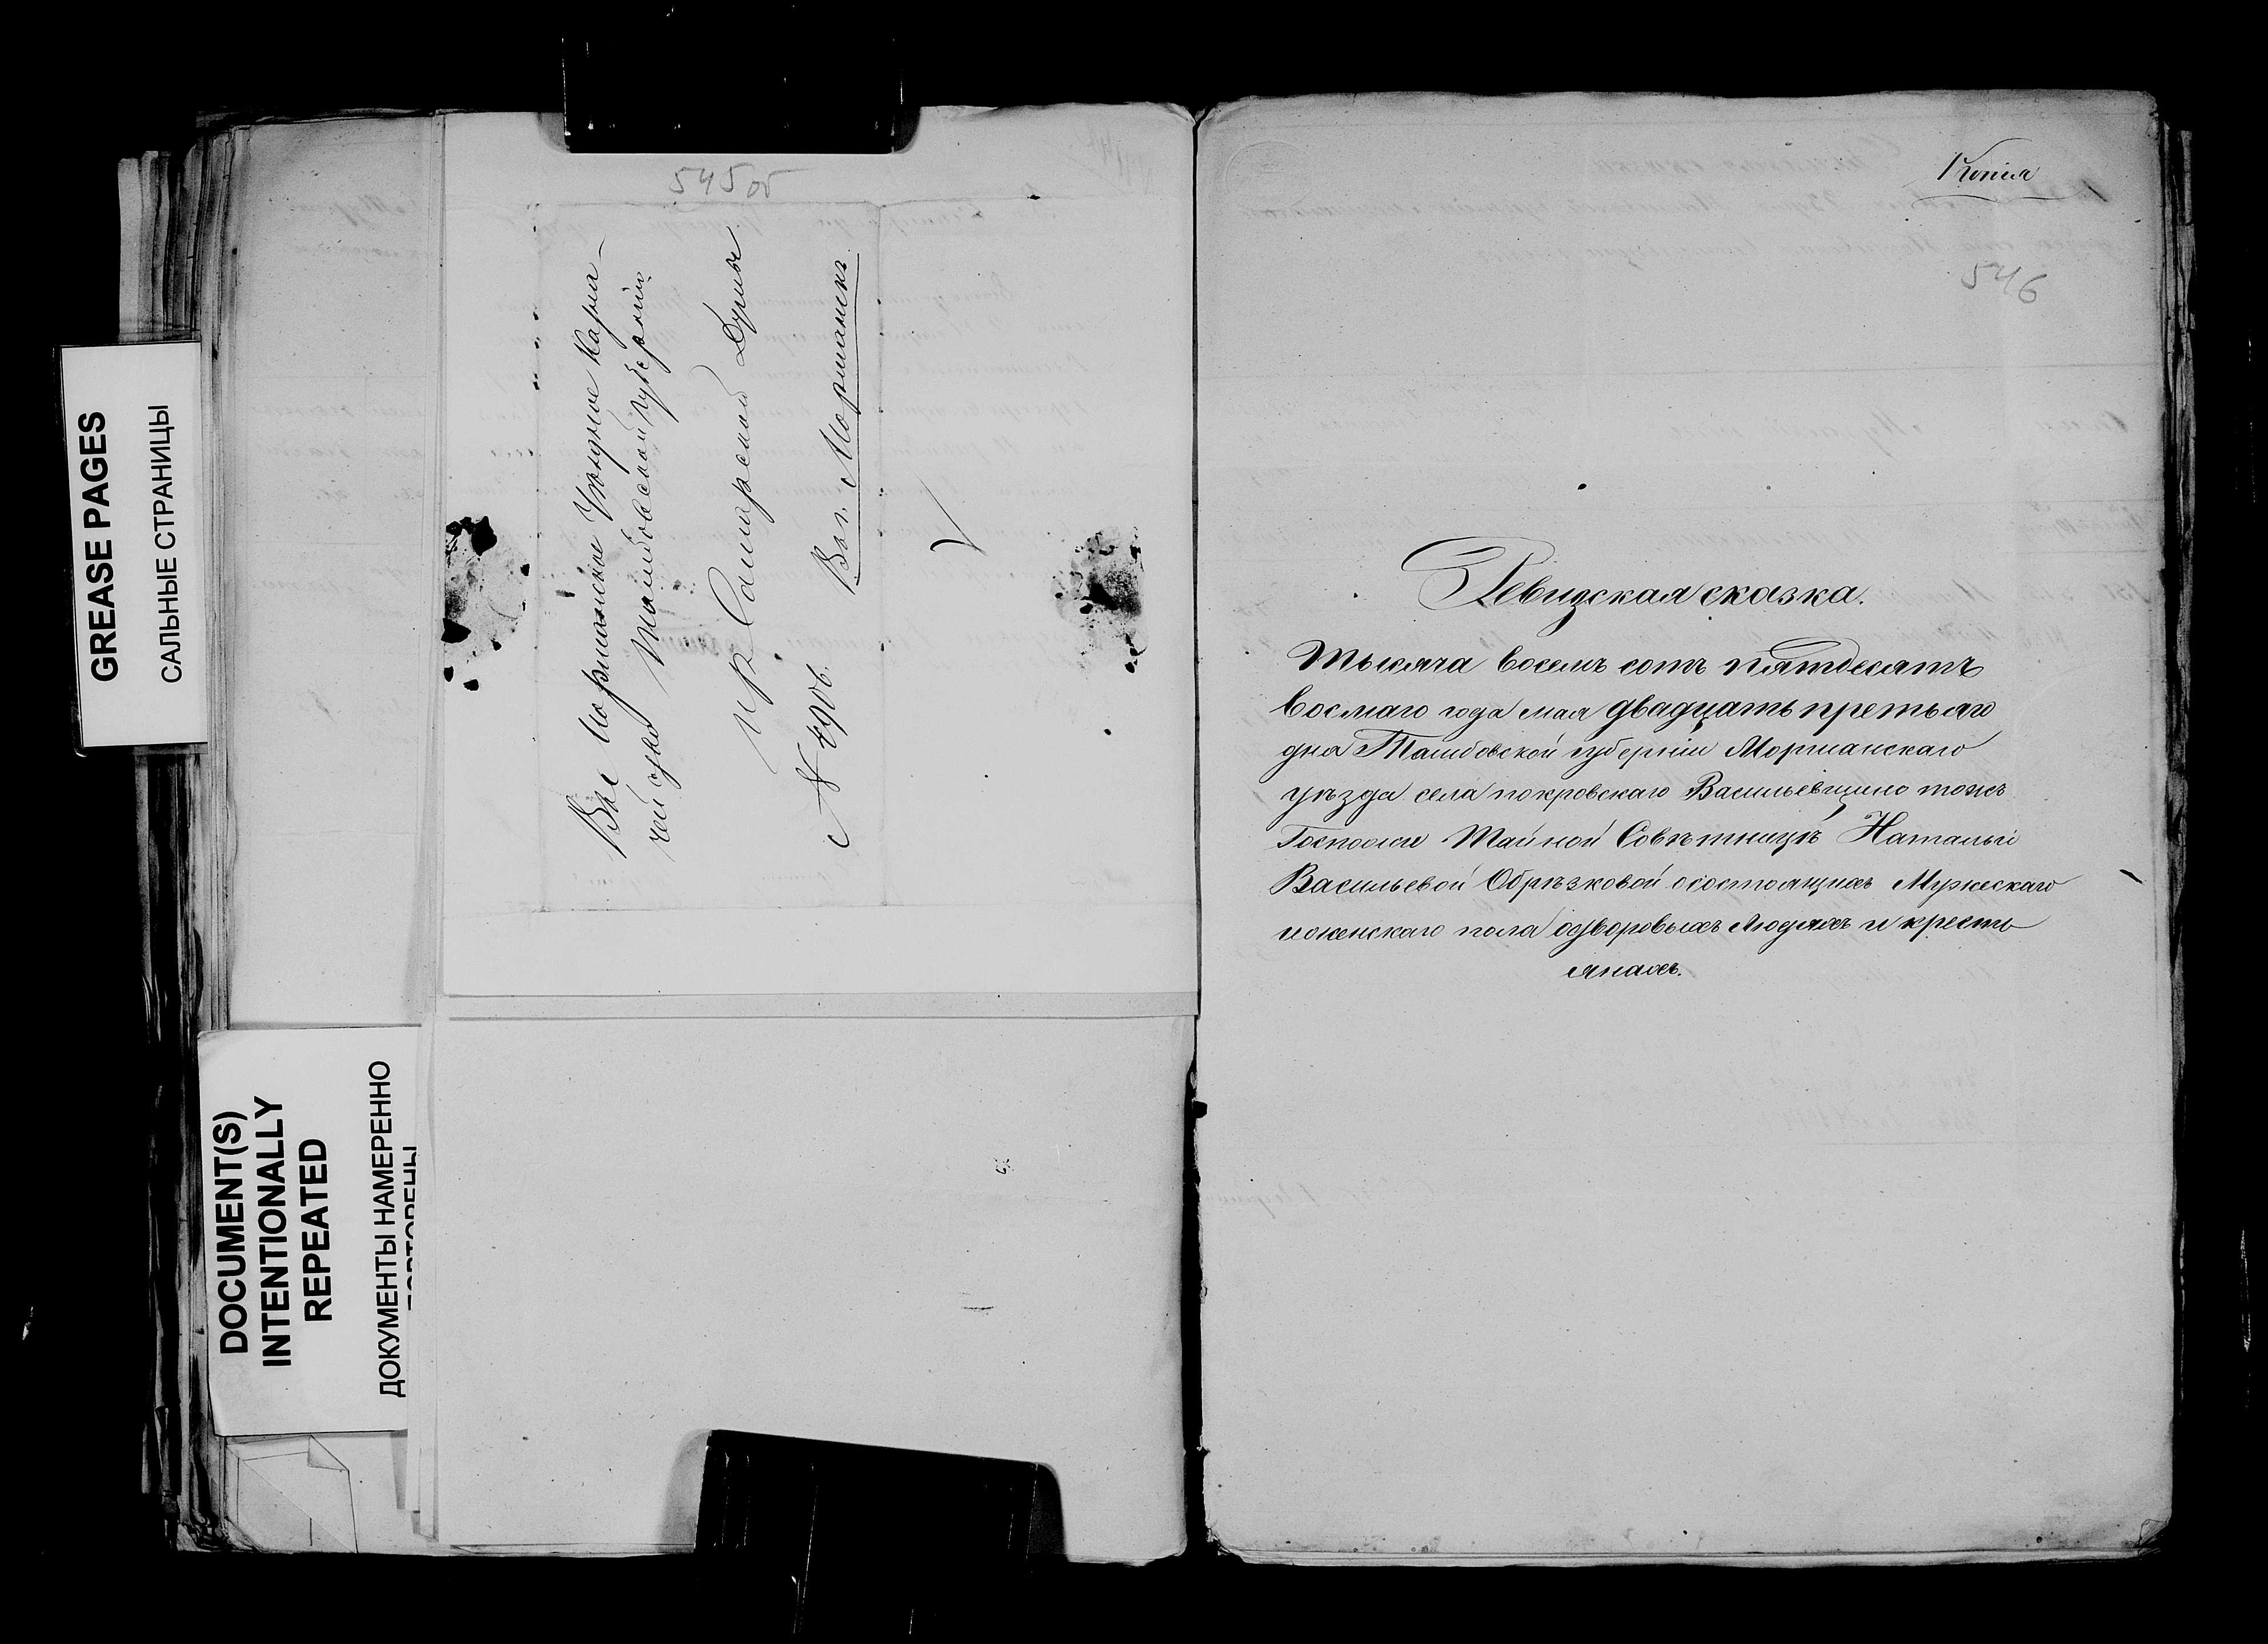 GREASE PAGES
САЛЬНЫЕ СТРАНИЦЫ
DOCUMENT(S)
INTENTIONALLY
REPEATED
ДОКУМЕНТЫ НАМЕРЕННО
ПОВТОРЕНЫ
545об
Въ Моршанское Уѣздное Казна-
чейство Тамбовской губерніи
изъ Самарской Думы
№ 4906.
Въ г. Моршанскъ
Копія
546
Ревизская сказка.
Тысяча восемь сотъ пятдесятъ
восмаго года мая двадцать третьяго
дня Тамбовской губерніи Моршанскаго
уѣзда села покровскаго Васильевщино тожъ
Госпожи Тайной Совѣтницѣ Натальи
Васильевой Обрѣзковой осостоящихъ Мужескаго
иженскаго пола одворовыхъ Людяхъ и кресть
янахъ.